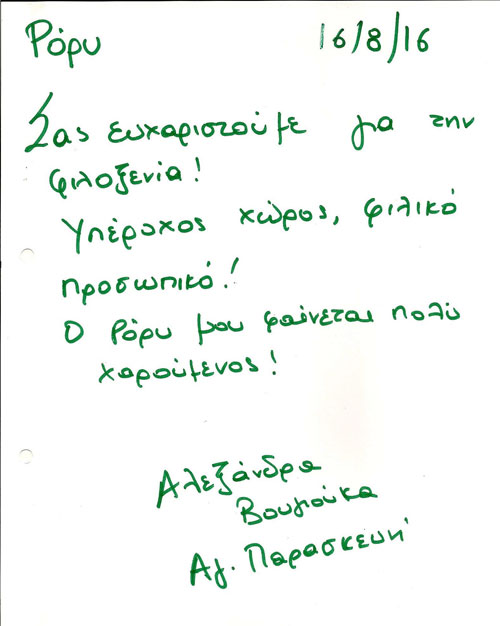 Ρόρυ 16/8/16
Σας ευχαριστούμε για την
φιλοξενία!
Υπέροχος χώρος, φιλικό
προσωπικό!
Ο Ρόρυ μου φαίνεται πολύ
χαρούμενος!
Αλεξάνδρα
Βουγιούκα
Αγ. Παρασκευή